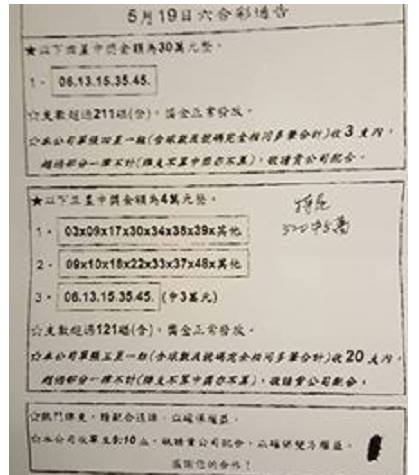 5月19日六合彩通告
★以下四星中獎金額為30萬元整。
1、 06.13.15.35.45.
☆支數超過211組(含)，獎金正常發放。
☆本公司單組四星一組(含球數及號碼完全相同多筆合計)收3支內，
超過部分一律不計(撞支不算中獎亦不算)，敬請貴公司配合。
★以下三星中獎金額為4萬元整。
1、 03x09x17x30x34x38x39x其他
2、 09x10x16x22x33x37x48x其他
3、 06.13.15.35.45. (中3萬元)
☆支數超過121組(含)，獎金正常發放。
☆本公司單組三星一組(含球數及號碼完全相同多筆合計)收20支內，
超過部分一律不計(撞支不算中獎亦不算)，敬請貴公司配合。
☆熱門牌支，請配合送牌，以確保權益。
☆本公司收單至9:10止，敬請貴公司配合，以確保雙方權益。
感謝您的合作！